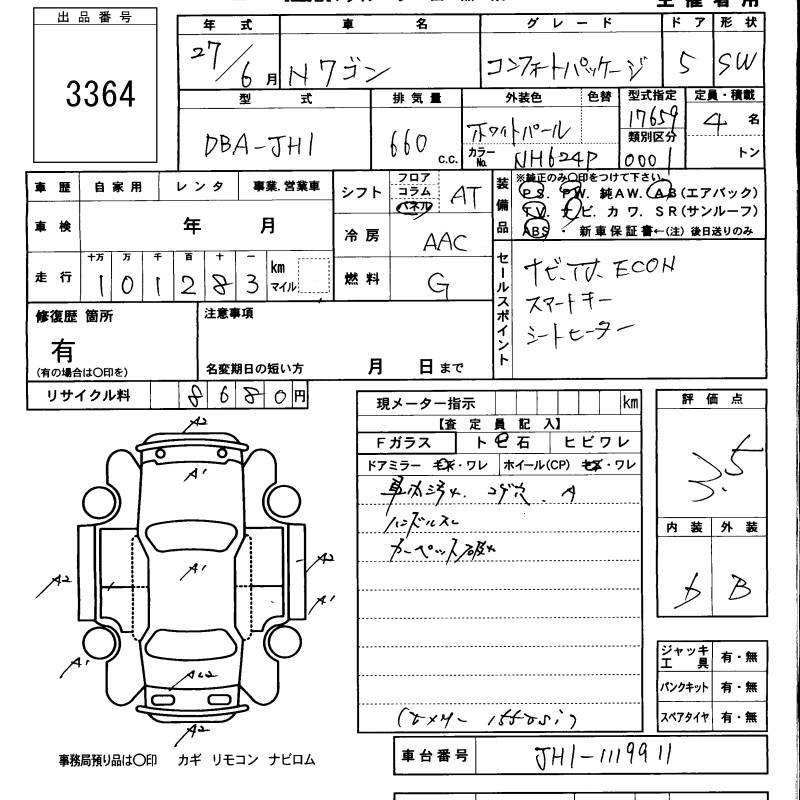 出品番号
3364
年式 車名 グレード ドア 形状
27/6月 Nワゴン コンフォートパッケージ 5 SW
型式 排気量 外装色 色替 型式指定 定員・積載
DBA-JH1 660 c.c. ホワイトパール 17659 4 名
類別区分
カラーNo. NH624P 0001 トン
車歴 自家用 レンタ 事業.営業車
シフト フロア コラム パネル AT
装備品
※純正のみ〇印をつけて下さい。
P S. P W. 純A W. A B(エアバック)
T V. ナ ビ. カ ワ. S R(サンルーフ)
ABS ・ 新車保証書←(注) 後日送りのみ
車検 年 月
冷房 AAC
走行 十万 万 千 百 十 一 km マイル
1 0 1 2 8 3
燃料 G
セールスポイント
ナビ.TV. ECON
スマートキー
シートヒーター
修復歴 箇所
有
(有の場合は〇印を)
注意事項
名変期日の短い方 月 日まで
リサイクル料 8 6 8 0 円
現メーター指示 km
【査定員記入】
Fガラス トビ石 ヒビワレ
ドアミラー キズ・ワレ ホイール(CP) キズ・ワレ
車内汚れ. コゲ穴. A
ハンドルスレ
カーペット破れ
評価点
3.5
内装 外装
b B
A2
A1
A2
A1
A2
A1
A1
A2
ジャッキ工具 有・無
パンクキット 有・無
スペアタイヤ 有・無
事務局預り品は〇印 カギ リモコン ナビロム
車台番号 JH1-1119911